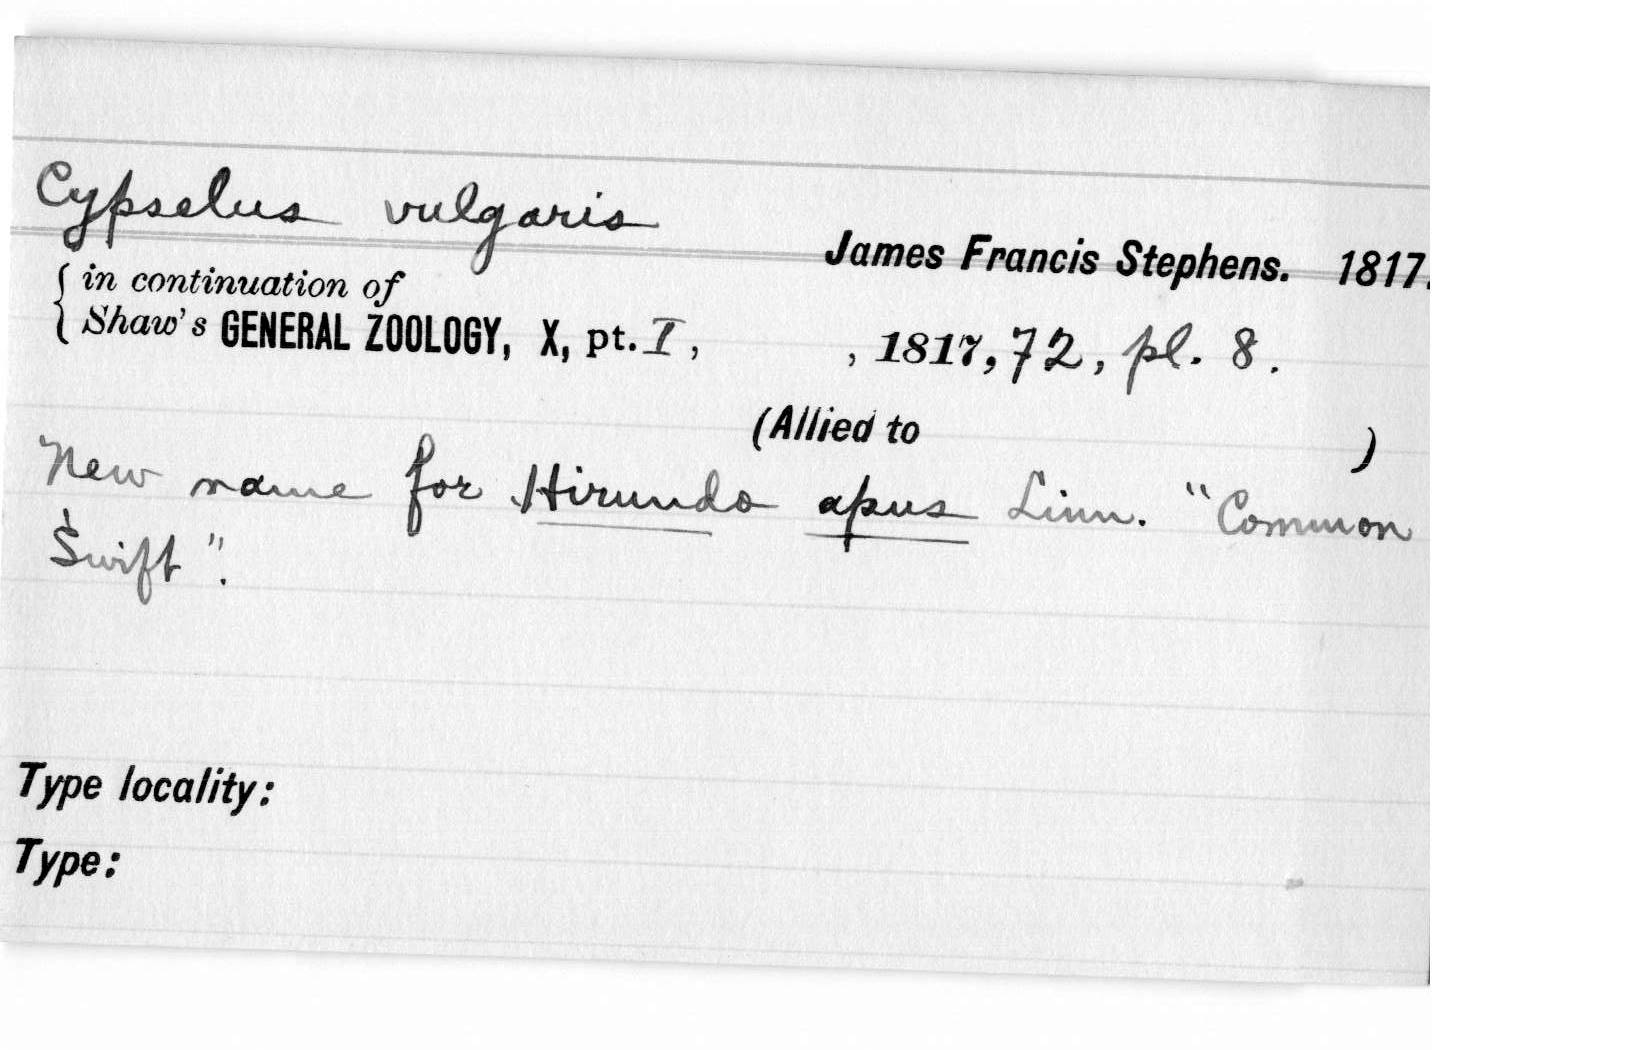 Cypselus vulgaris
James Francis Stephens. 1817.
{ in continuation of
Shaw's GENERAL ZOOLOGY, X, pt. I, , 1817, 72, pl. 8.
(Allied to )
New name for Hirundo apus Linn. "Common
Swift".
Type locality:
Type: